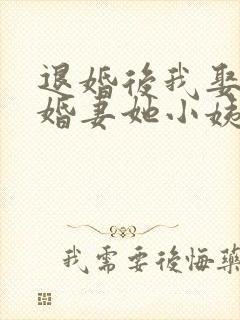 退婚後我娶
婚妻她小姨
我需要後悔藥